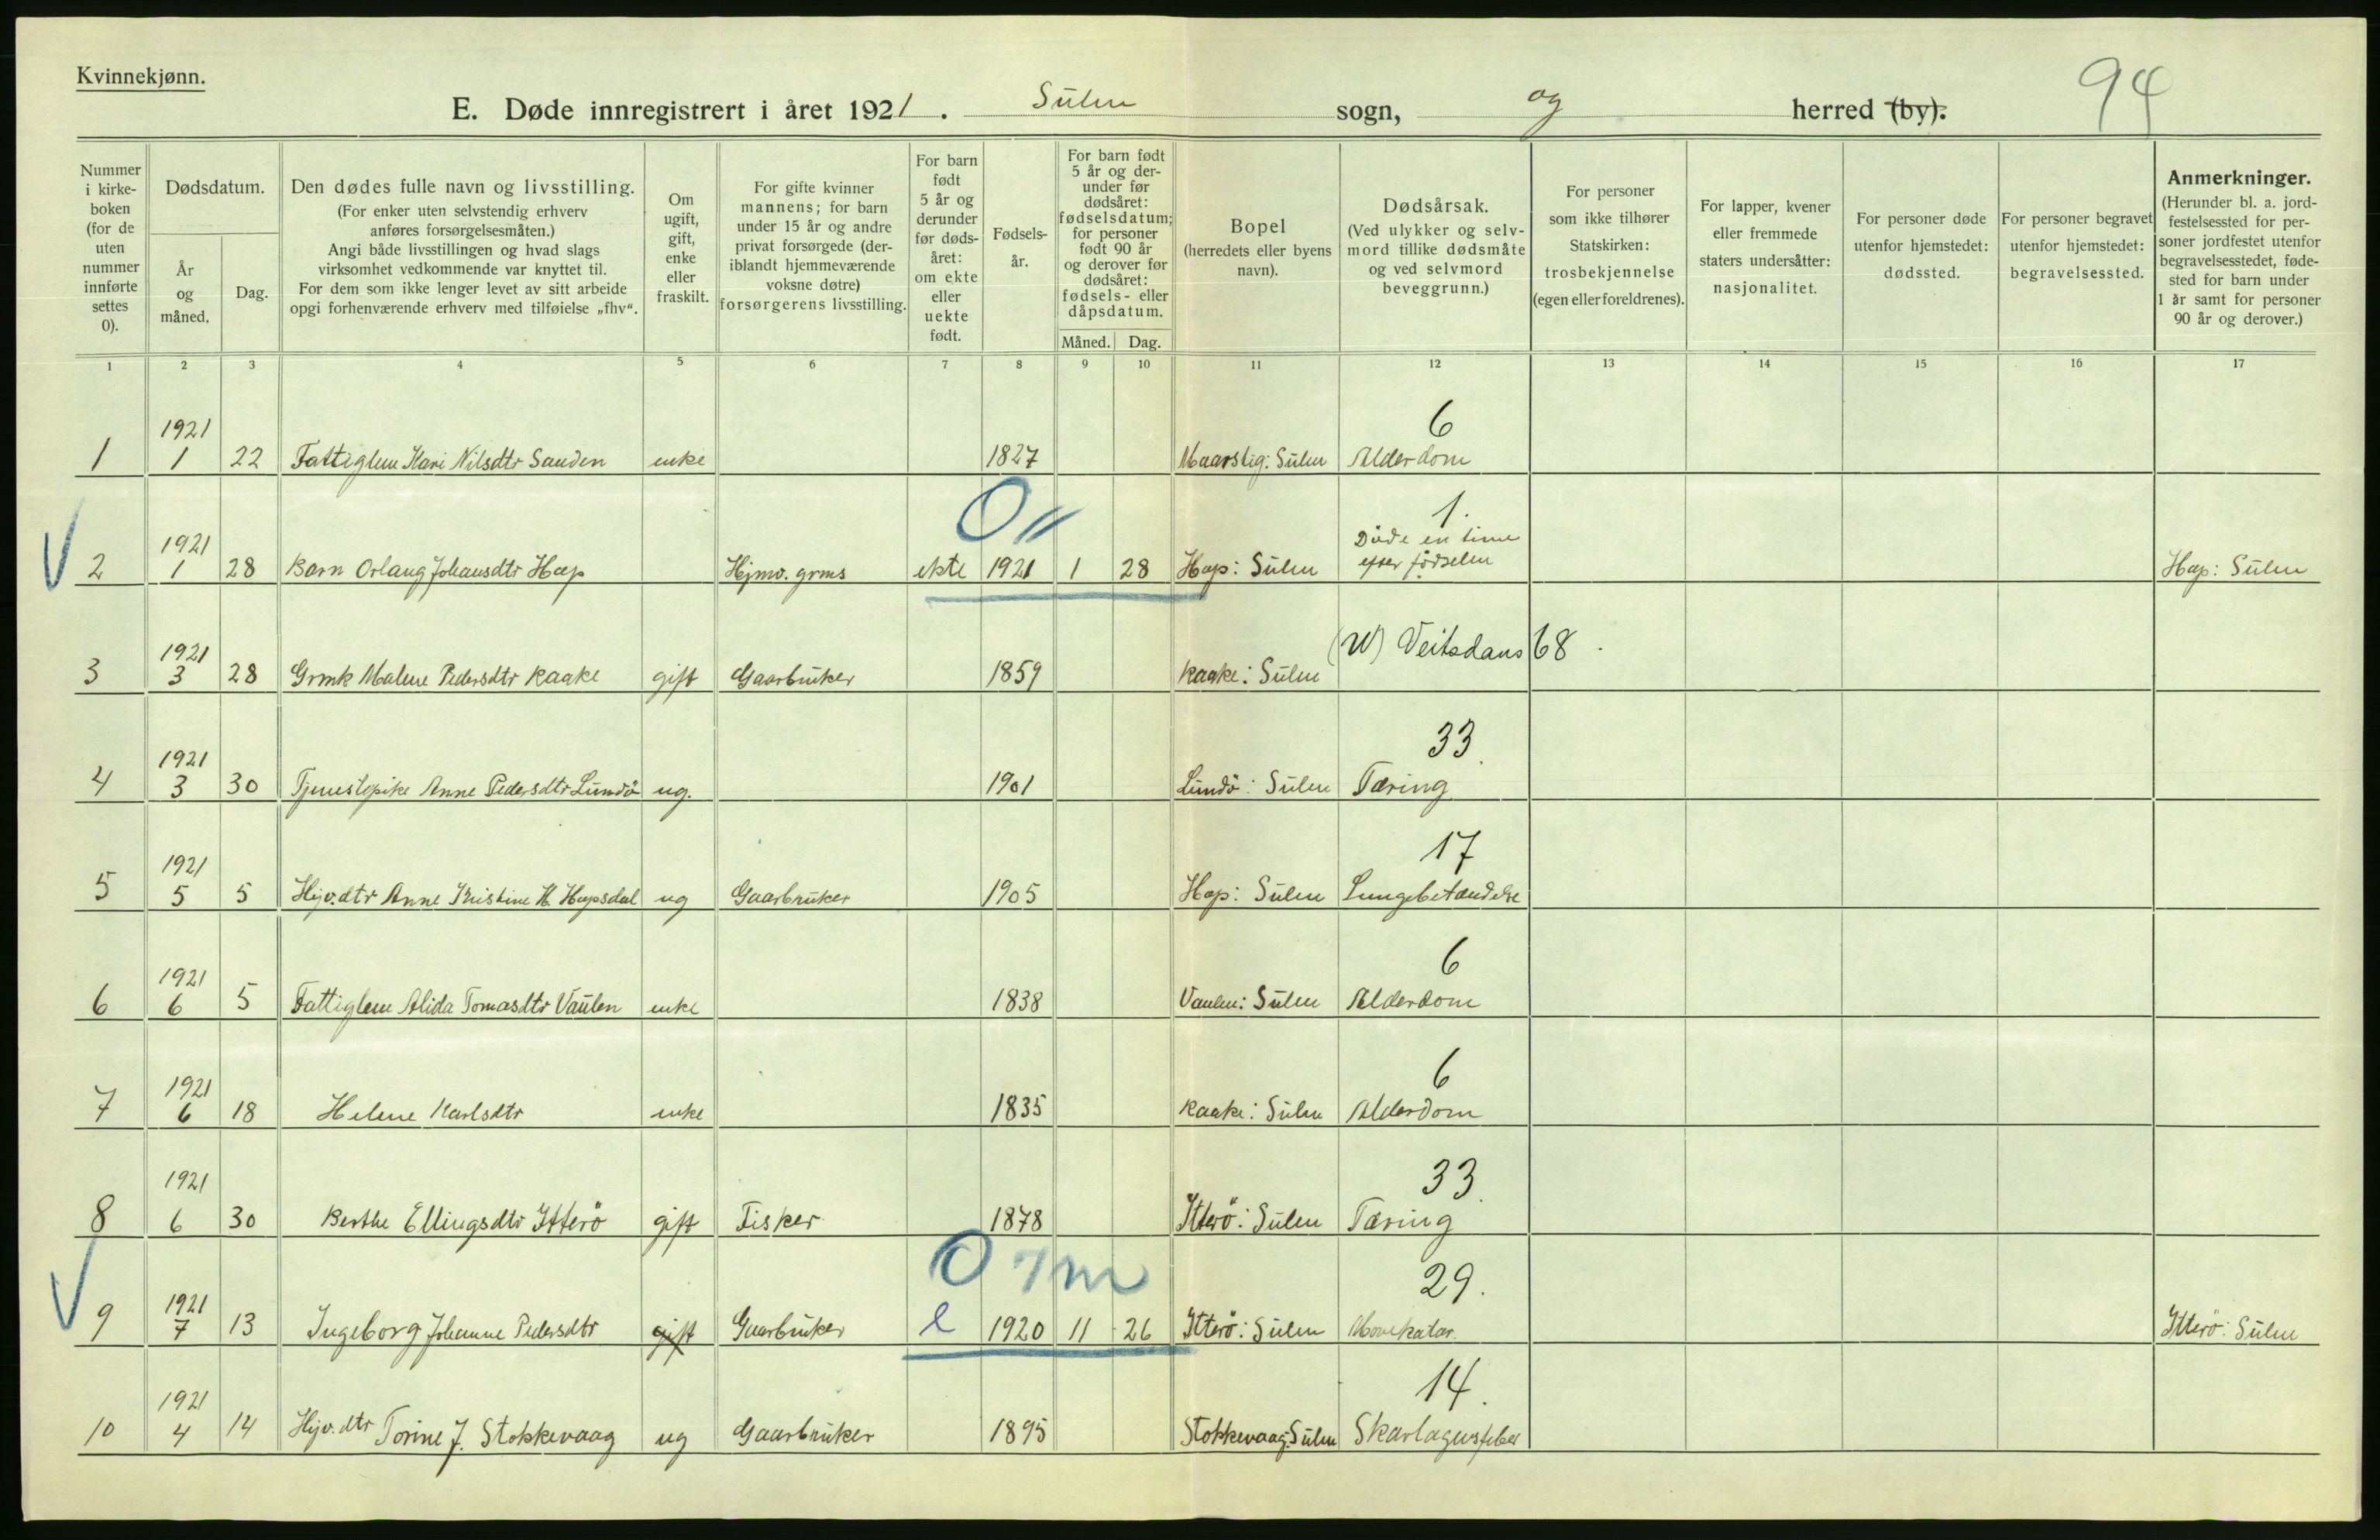 Kvinnekjønn.
94
E. Døde innregistrert i året 1921. Sulen sogn, og herred (by).
Nummer i kirke- boken (for de uten nummer innførte settes 0).
Dødsdatum.
År og måned.
Dag.
Den dødes fulle navn og livsstilling.
(For enker uten selvstendig erhverv
anføres forsørgelsesmåten.)
Angi både livsstillingen og hvad slags
virksomhet vedkommende var knyttet til.
For dem som ikke lenger levet av sitt arbeide
opgi forhenværende erhverv med tilføielse „fhv“.
Om ugift, gift, enke eller fraskilt.
For gifte kvinner
mannens; for barn
under 15 år og andre
privat forsørgede (der-
iblandt hjemmeværende
voksne døtre)
forsørgerens livsstilling.
For barn født 5 år og derunder før døds- året: om ekte eller uekte født.
Fødsels- år.
For barn født
5 år og der-
under før
dødsåret:
fødselsdatum;
for personer
født 90 år
og derover før
dødsåret:
fødsels- eller
dåpsdatum.
Måned. Dag.
Bopel
(herredets eller byens
navn).
Dødsårsak.
(Ved ulykker og selv-
mord tillike dødsmåte
og ved selvmord
beveggrunn.)
For personer
som ikke tilhører
Statskirken:
trosbekjennelse
(egen eller foreldrenes).
For lapper, kvener
eller fremmede
staters undersåtter:
nasjonalitet.
For personer døde
utenfor hjemstedet:
dødssted.
For personer begravet
utenfor hjemstedet:
begravelsessted.
Anmerkninger.
(Herunder bl. a. jord-
festelsessted for per-
soner jordfestet utenfor
begravelsesstedet, føde-
sted for barn under
1 år samt for personer
90 år og derover.)
1 2 3 4 5 6 7 8 9 10 11 12 13 14 15 16 17
1921 6
1 1 22 Fattiglem Kari Nilsdtr Sanden enke 1827 Sulen Alderdom
O 1.
1921 Döde en time
2 1 28 Barn Orlaug Johansdtr Hop Hjmv. grms ekte 1921 1 28 Hop: Sulen efter födselen Hop: Sulen
1921 (W) Veitsdans 68
3 3 28 Grmk Malene Pedersdtr Kaake gift Gaarbruker 1859 Kaake: Sulen
1921 33
4 3 30 Tjenestepike Anne Pedersdtr Lundö ug. 1901 Lundö: Sulen Tæring
1921 17
5 5 5 Hjv.dtr Anne Kristine H. Hopsdal ug Gaarbruker 1905 Hop: Sulen Lungebetændelse
1921 6
6 6 5 Fattiglem Alida Tomasdtr Vaulen enke 1838 Vaulen: Sulen Alderdom
1921 6
7 6 18 Helene Karlsdtr enke 1835 Kaake: Sulen Alderdom
1921 33
8 6 30 Berthe Ellingsdtr Itterö gift Fisker 1878 Itterö: Sulen Tæring
O 7m
1921 29.
9 7 13 Ingeborg Johanne Pedersdtr gift Gaarbruker e 1920 11 26 Itterö: Sulen Itterö: Sulen
1921 14.
10 4 14 Hjv.dtr Torine J. Stokkevaag ug Gaarbruker 1895 Stokkevaag: Sulen Skarlagensfeber